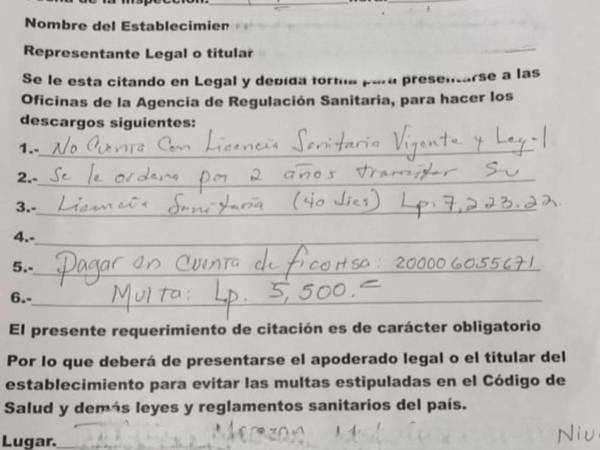 Nombre del Establecimien
Representante Legal o titular
Se le esta citando en Legal y debida forma para presentarse a las
Oficinas de la Agencia de Regulación Sanitaria, para hacer los
descargos siguientes:
1.- No Cuenta Con Licencia Sanitaria Vigente y Legal
2.- Se le ordena por 2 años tramitar Su
3.- Licencia Sanitaria (40 dies) Lp. 7,223.22.
4.-
5.- Pagar en Cuenta de ficohsa: 200006055671
6.- Multa: Lp. 5,500.=
El presente requerimiento de citación es de carácter obligatorio
Por lo que deberá de presentarse el apoderado legal o el titular del
establecimiento para evitar las multas estipuladas en el Código de
Salud y demás leyes y reglamentos sanitarios del país.
Lugar. Morazan